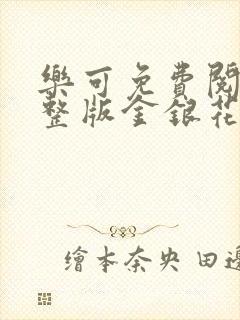 樂可免費閱
整版金銀花
繪本奈央 田邊